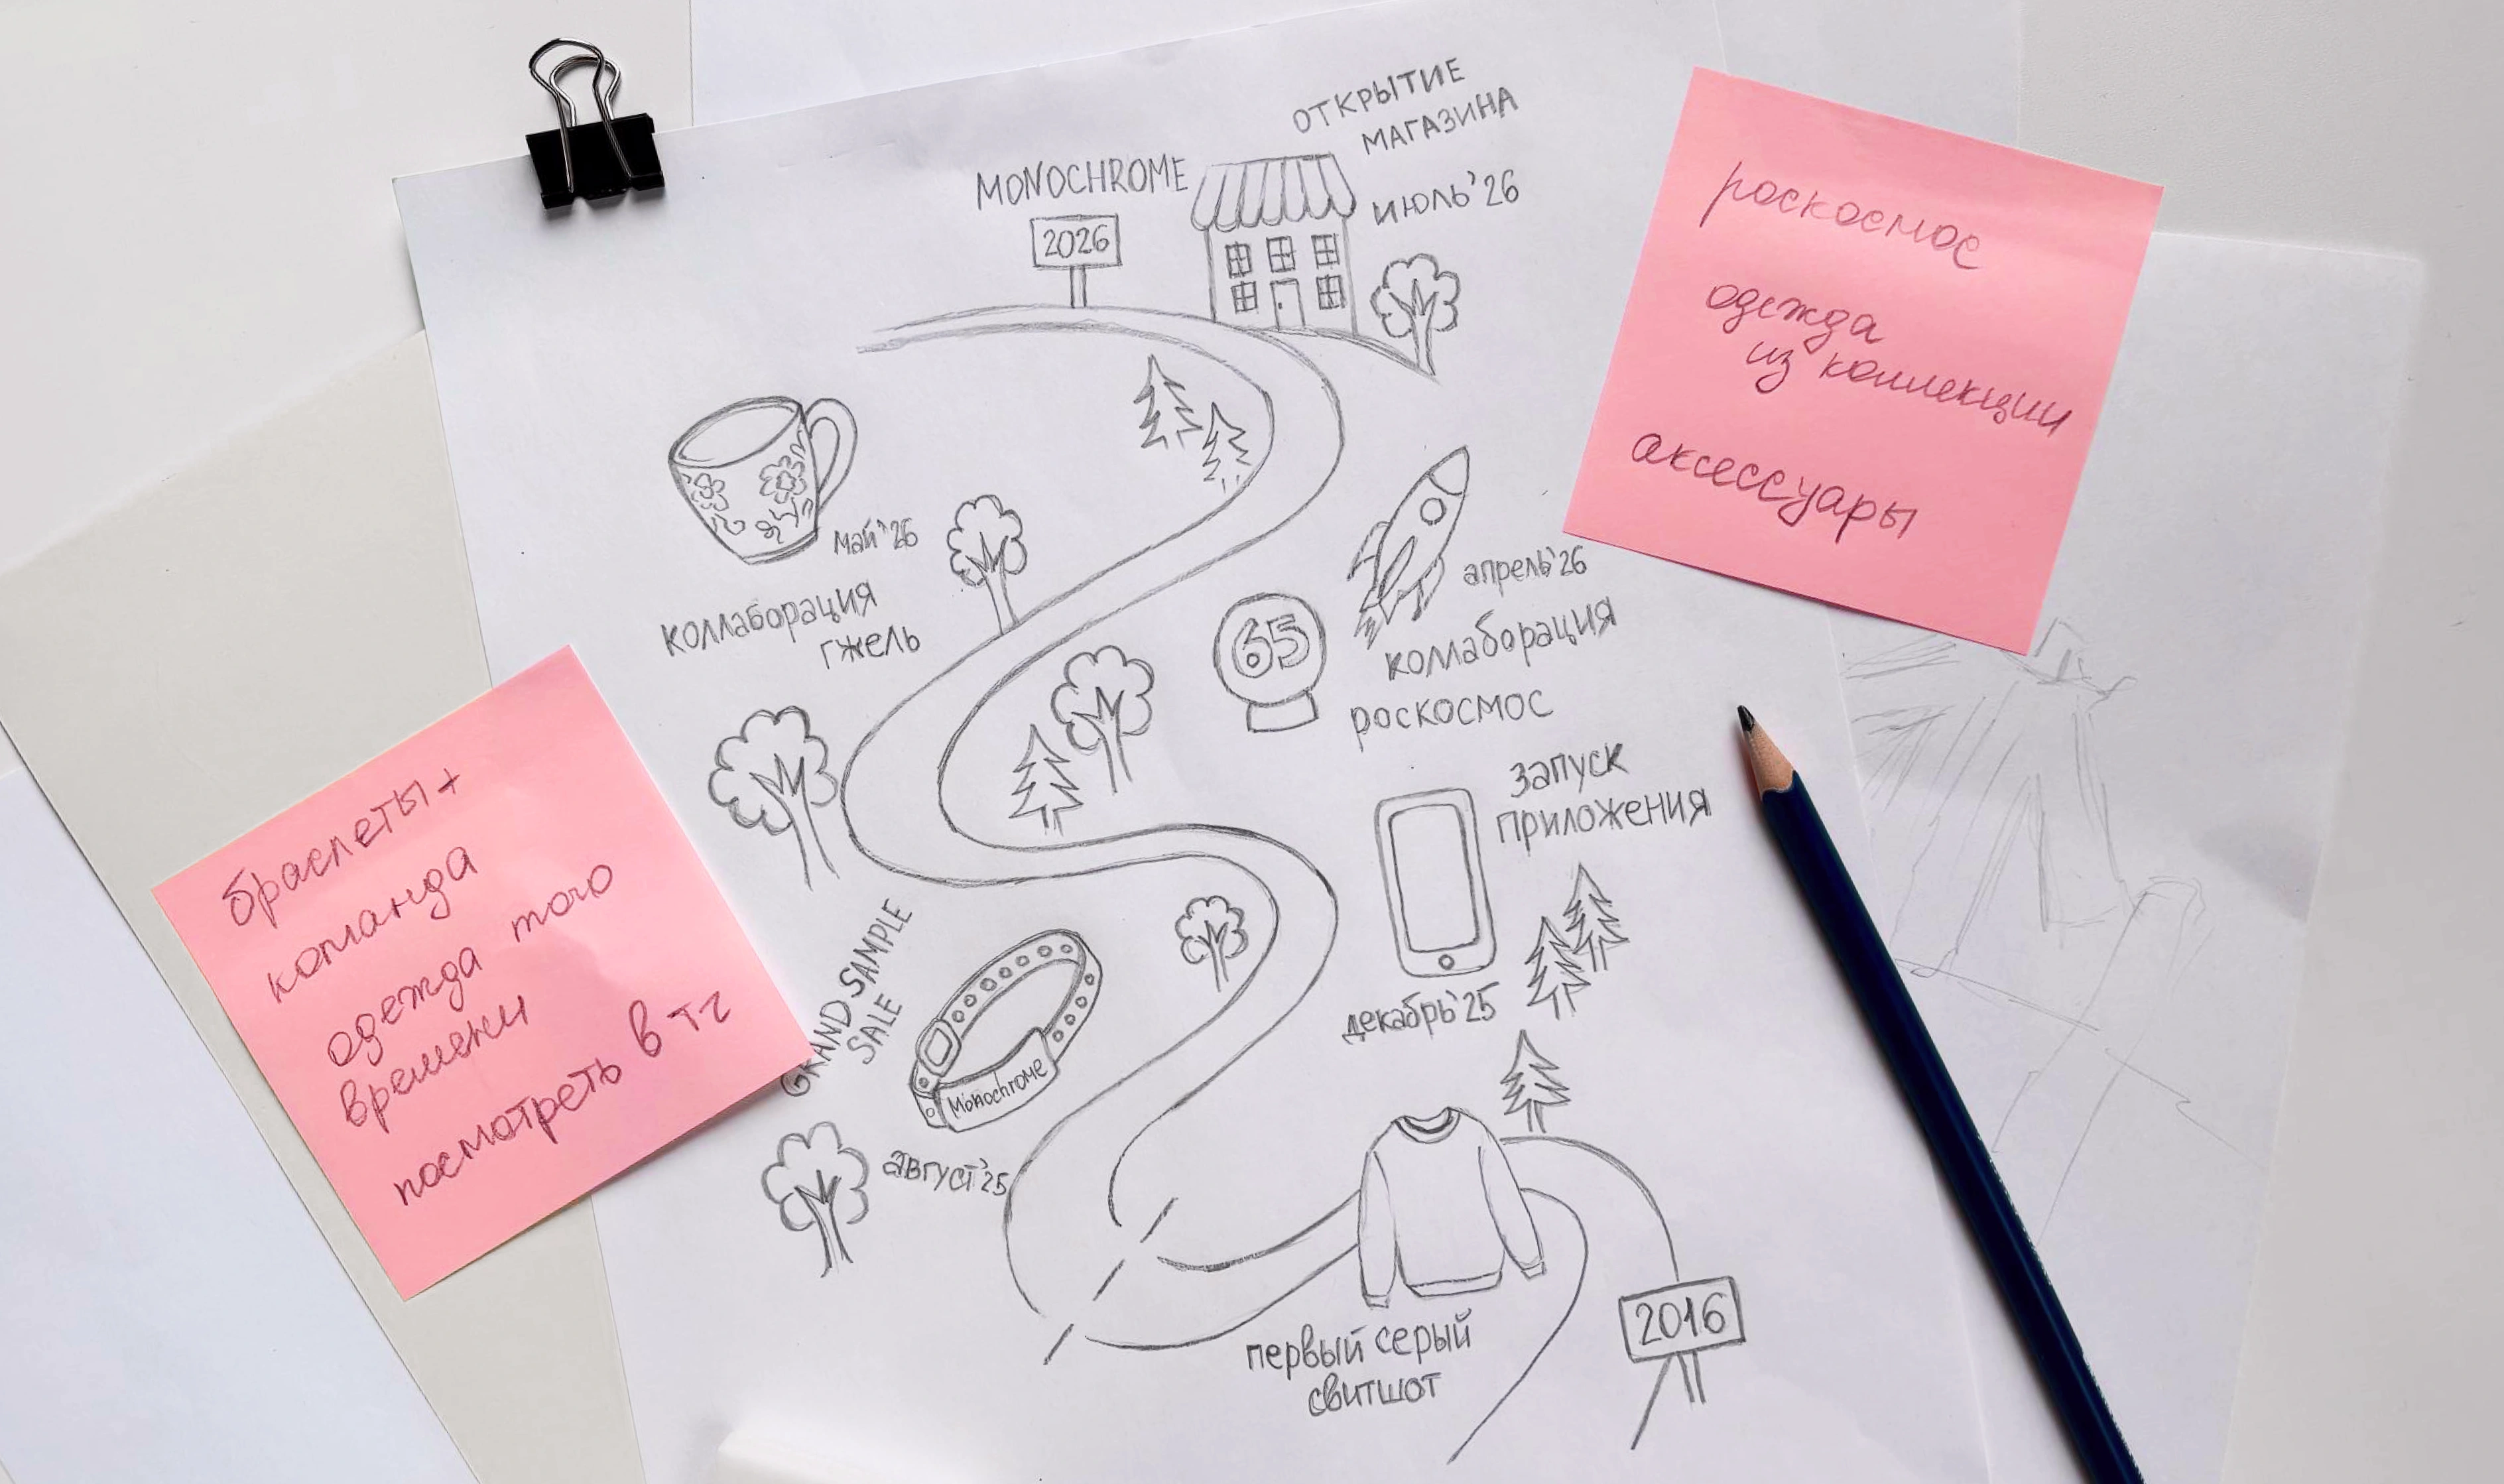 ОТКРЫТИЕ
МАГАЗИНА
ИЮЛЬ'26
MONOCHROME
2026
май'26
коллаборация
гжель
апрель'26
65
коллаборация
роскосмос
запуск
приложения
декабрь'25
GRAND SAMPLE
SALE
Monochrome
август'25
первый серый
свитшот
2016
роскосмос
одежда
из коллекции
аксессуары
браслеты +
команда
одежда того
времени
посмотреть в тг